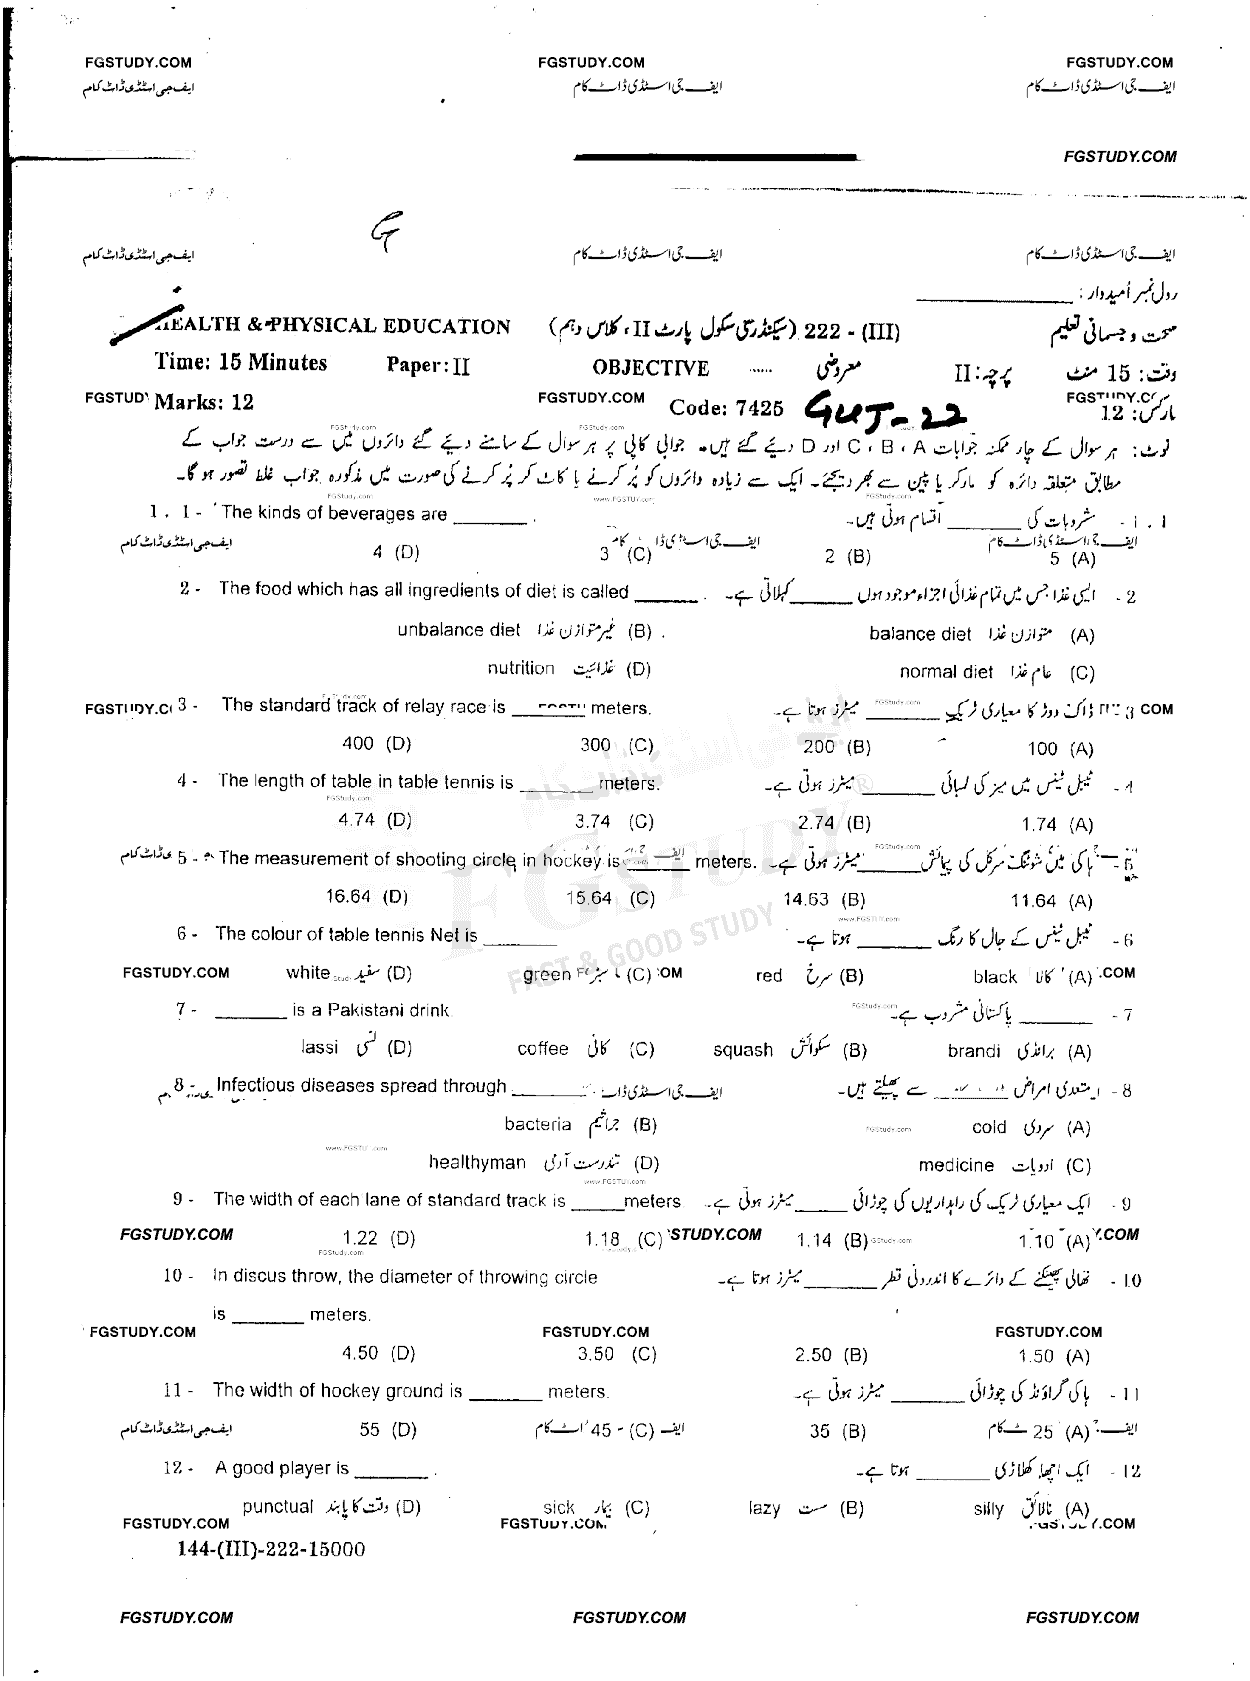 FGSTUDY.COM FGSTUDY.COM FGSTUDY.COM
ایف جی اسٹڈی ڈاٹ کام ایف جی اسٹڈی ڈاٹ کام ایف جی اسٹڈی ڈاٹ کام
FGSTUDY.COM
G
ایف جی اسٹڈی ڈاٹ کام ایف جی اسٹڈی ڈاٹ کام ایف جی اسٹڈی ڈاٹ کام
رول نمبر اُمیدوار :
HEALTH & PHYSICAL EDUCATION (سیکنڈری سکول پارٹ II، کلاس دہم) 222 - (III) صحت و جسمانی تعلیم
Time: 15 Minutes Paper: II OBJECTIVE ...... معروضی پرچہ: II وقت: 15 منٹ
FGSTUD Marks: 12 FGSTUDY.COM Code: 7425 GUJ-22 مارکس: 12
نوٹ: ہر سوال کے چار ممکنہ جوابات A ، B ، C اور D دیئے گئے ہیں۔ جوابی کاپی پر ہر سوال کے سامنے دیئے گئے دائروں میں سے درست جواب کے
مطابق متعلقہ دائرہ کو مارکر یا پین سے بھر دیجئے۔ ایک سے زیادہ دائروں کو پُر کرنے یا کاٹ کر پُر کرنے کی صورت میں مذکورہ جواب غلط تصور ہو گا۔
1 . 1 - The kinds of beverages are ______ . 1 . 1 - مشروبات کی ______ اقسام ہوتی ہیں۔
4 (D) 3 (C) 2 (B) 5 (A)
2 - The food which has all ingredients of diet is called ______ . 2 - ایسی غذا جس میں تمام غذائی اجزاء موجود ہوں ______ کہلاتی ہے۔
unbalance diet غیر متوازن غذا (B) . balance diet متوازن غذا (A)
nutrition غذائیت (D) normal diet عام غذا (C)
3 - The standard track of relay race is ______ meters. 3 ڈاک دوڑ کا معیاری ٹریک ______ میٹرز ہوتا ہے۔
400 (D) 300 (C) 200 (B) 100 (A)
4 - The length of table in table tennis is ______ meters. 4 - ٹیبل ٹینس میں میز کی لمبائی ______ میٹرز ہوتی ہے۔
4.74 (D) 3.74 (C) 2.74 (B) 1.74 (A)
5 - The measurement of shooting circle in hockey is ______ meters. 5 - ہاکی میں شوٹنگ سرکل کی پیمائش ______ میٹرز ہوتی ہے۔
16.64 (D) 15.64 (C) 14.63 (B) 11.64 (A)
6 - The colour of table tennis Net is ______ 6 - ٹیبل ٹینس کے جال کا رنگ ______ ہوتا ہے۔
FGSTUDY.COM white سفید (D) green سبز (C) red سرخ (B) black کالا (A)
7 - ______ is a Pakistani drink 7 - ______ پاکستانی مشروب ہے۔
lassi لسی (D) coffee کافی (C) squash سکوائش (B) brandi برانڈی (A)
8 - Infectious diseases spread through ______ 8 - متعدی امراض ______ سے پھیلتے ہیں۔
bacteria جراثیم (B) cold سردی (A)
healthyman تندرست آدمی (D) medicine ادویات (C)
9 - The width of each lane of standard track is ______ meters 9 - ایک معیاری ٹریک کی راہداریوں کی چوڑائی ______ میٹرز ہوتی ہے۔
FGSTUDY.COM 1.22 (D) 1.18 (C) 1.14 (B) 1.10 (A)
10 - In discus throw, the diameter of throwing circle 10 - تھالی پھینکنے کے دائرے کا اندرونی قطر ______ میٹرز ہوتا ہے۔
is ______ meters.
FGSTUDY.COM FGSTUDY.COM FGSTUDY.COM
4.50 (D) 3.50 (C) 2.50 (B) 1.50 (A)
11 - The width of hockey ground is ______ meters. 11 - ہاکی گراؤنڈ کی چوڑائی ______ میٹرز ہوتی ہے۔
ایف جی اسٹڈی ڈاٹ کام 55 (D) 45 - (C) 35 (B) 25 (A)
12 - A good player is ______ . 12 - ایک اچھا کھلاڑی ______ ہوتا ہے۔
punctual وقت کا پابند (D) sick بیمار (C) lazy سست (B) silly نالائق (A)
FGSTUDY.COM FGSTUDY.COM FGSTUDY.COM
144-(III)-222-15000
FGSTUDY.COM FGSTUDY.COM FGSTUDY.COM